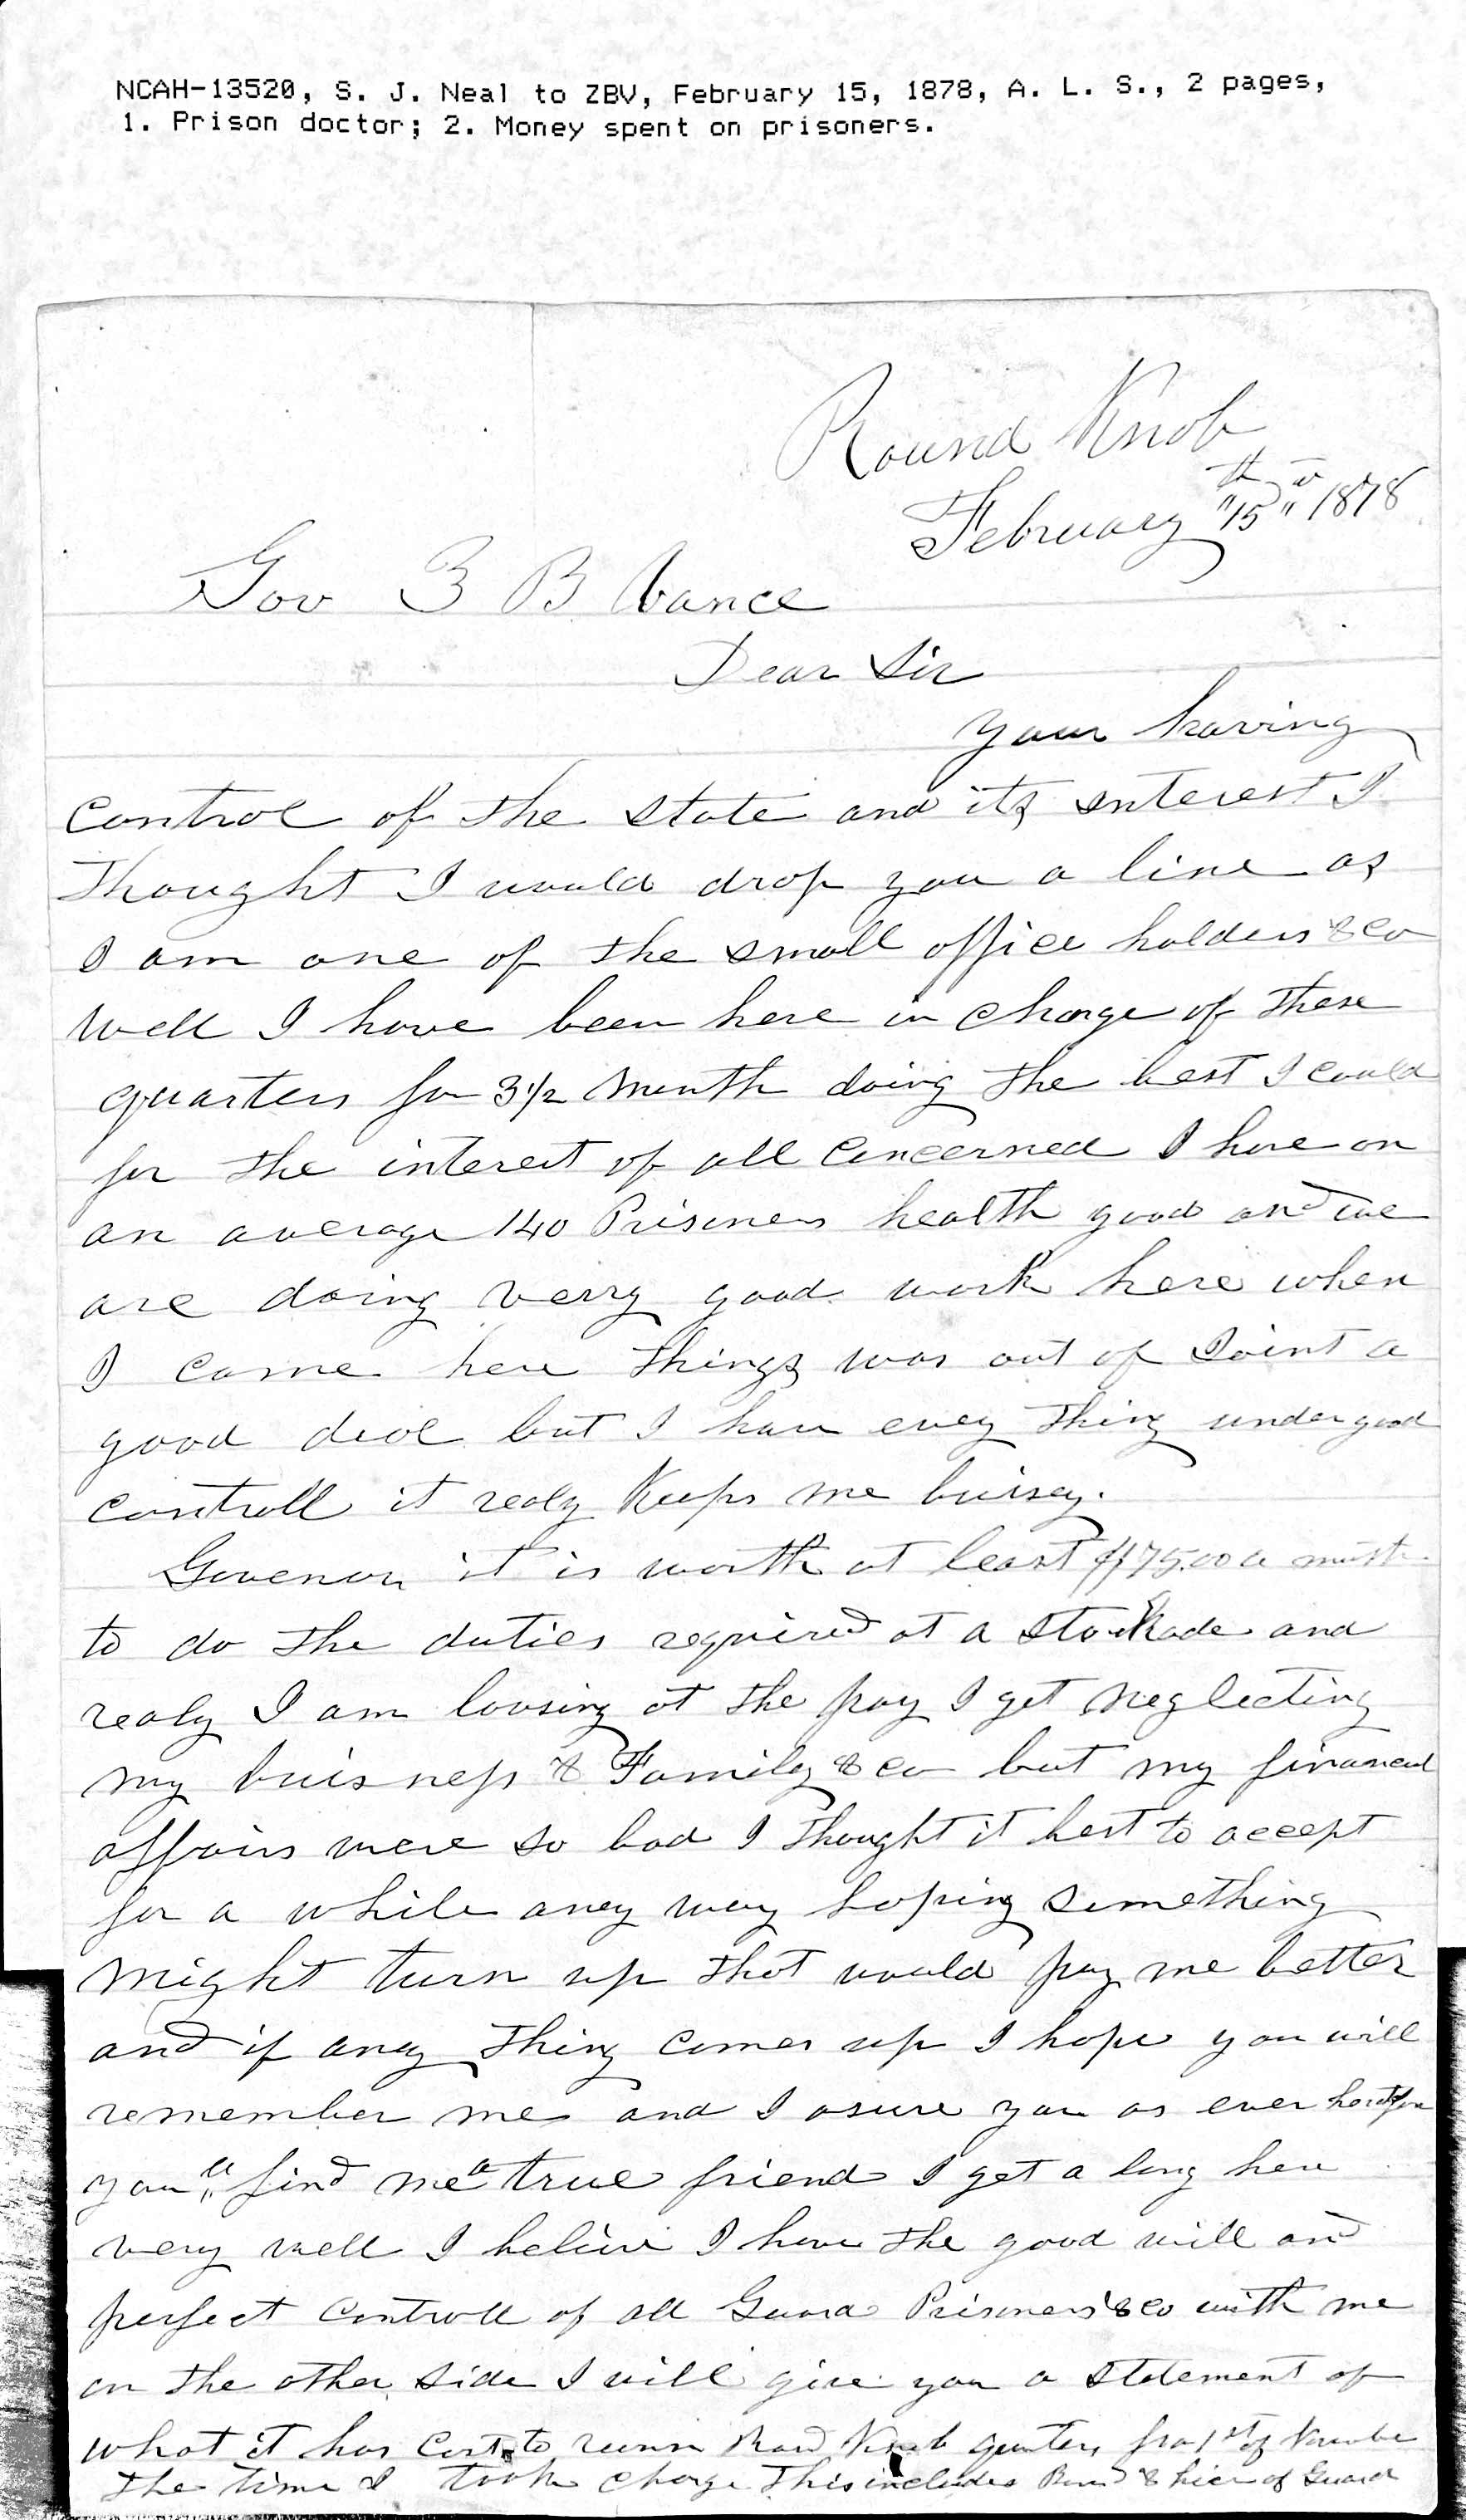 NCAH-13520, S. J. Neal to ZBV, February 15, 1878, A. L. S., 2 pages,
1. Prison doctor; 2. Money spent on prisoners.
Round Knob
February "15th" 1878
Gov Z B Vance
Dear Sir
Your having
control of the state and its interest I
thought I would drop you a line as
I am one of the small office holders &co
Well I have been here in charge of these
quarters for 3½ month doing the best I could
for the interest of all concerned I have on
an average 140 Prisoners health good and we
are doing verry good work here when
I came here things was out of Joint a
good deol but I have evey thing under good
controll it realy Keeps me buisey.
Govenor it is worth at least $175.00 a month
to do the duties required at a stockade and
realy I am loosing at the pay I get neglecting
my buisness & Family &co but my financial
affairs were so bad I thought it best to accept
for a while aney way hoping something
might turn up that would pay me better
and if aney thing comes up I hope you will
remember me and I asure you as ever heretofore
you"ll find me a true friend I get a long here
very well I believe I have the good will and
perfect controll of all Guard Prisoners &co with me
on the other side I will give you a statement of
what it has cost to runn Round Knob quarters from 1st of November
the time I took charge This includes Board & hier of Guard